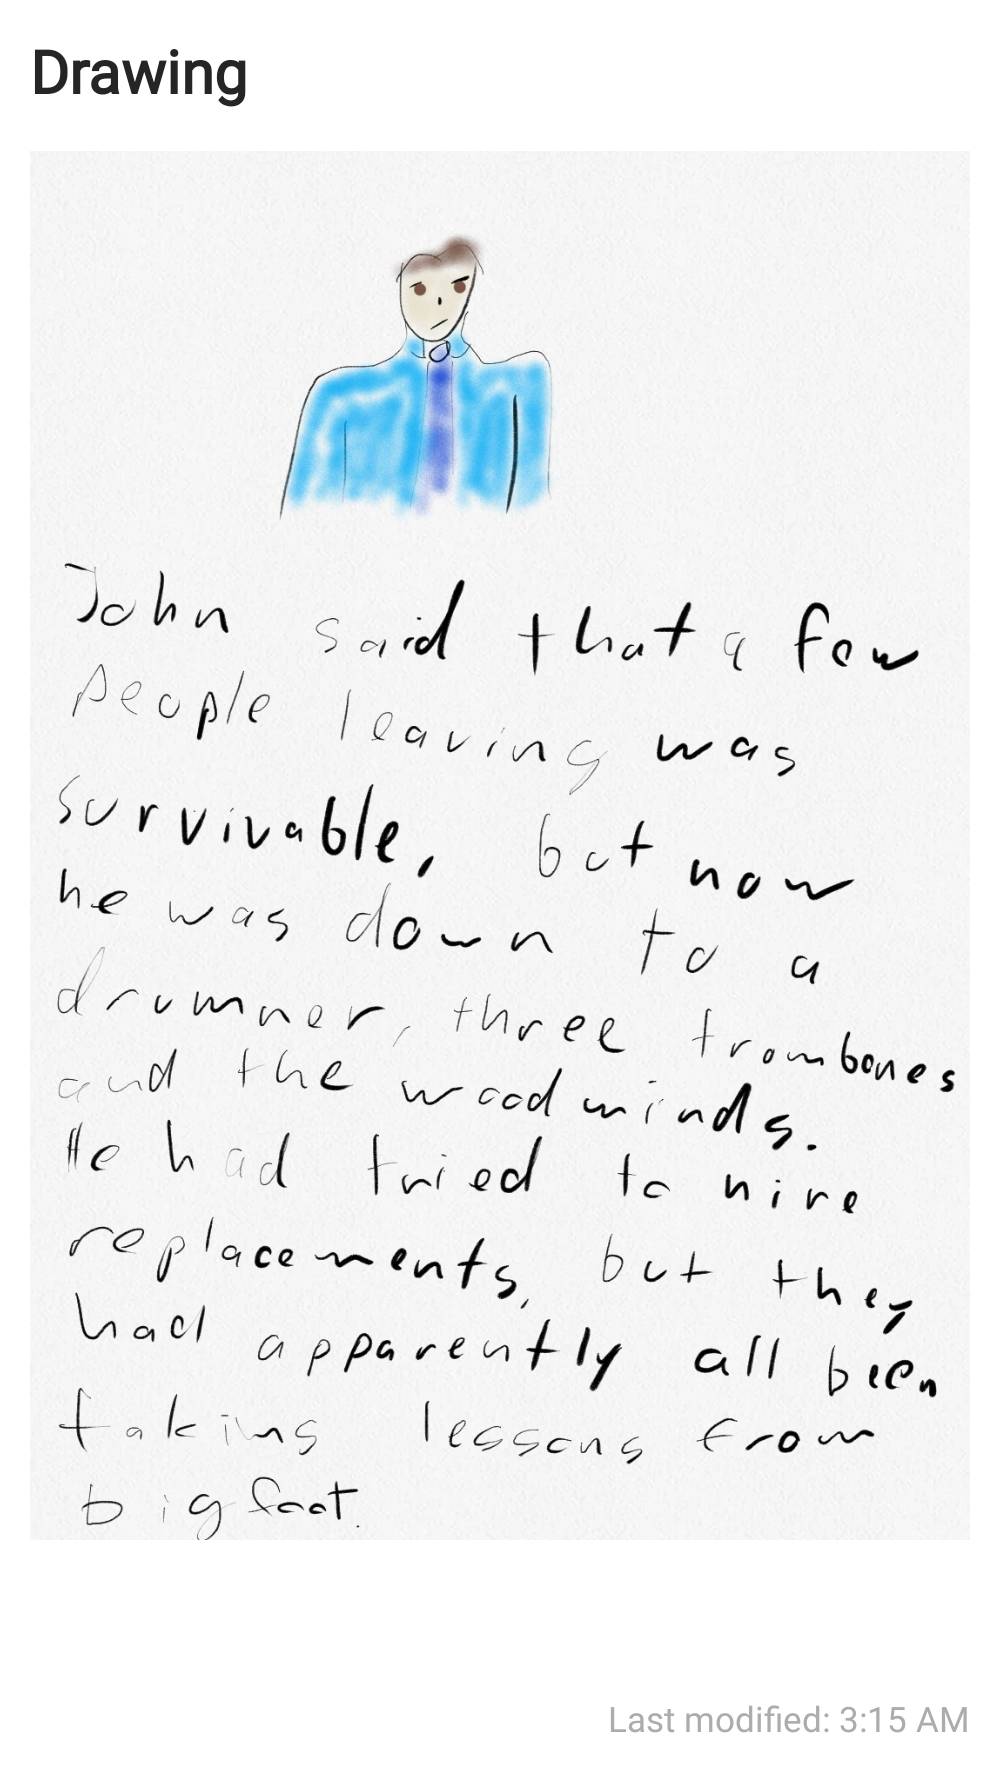 Drawing
John said that a few
people leaving was
survivable, but now
he was down to a
drummer, three trombones
and the woodwinds.
He had tried to hire
replacements, but they
had apparently all been
taking lessons from
bigfoot.
Last modified: 3:15 AM